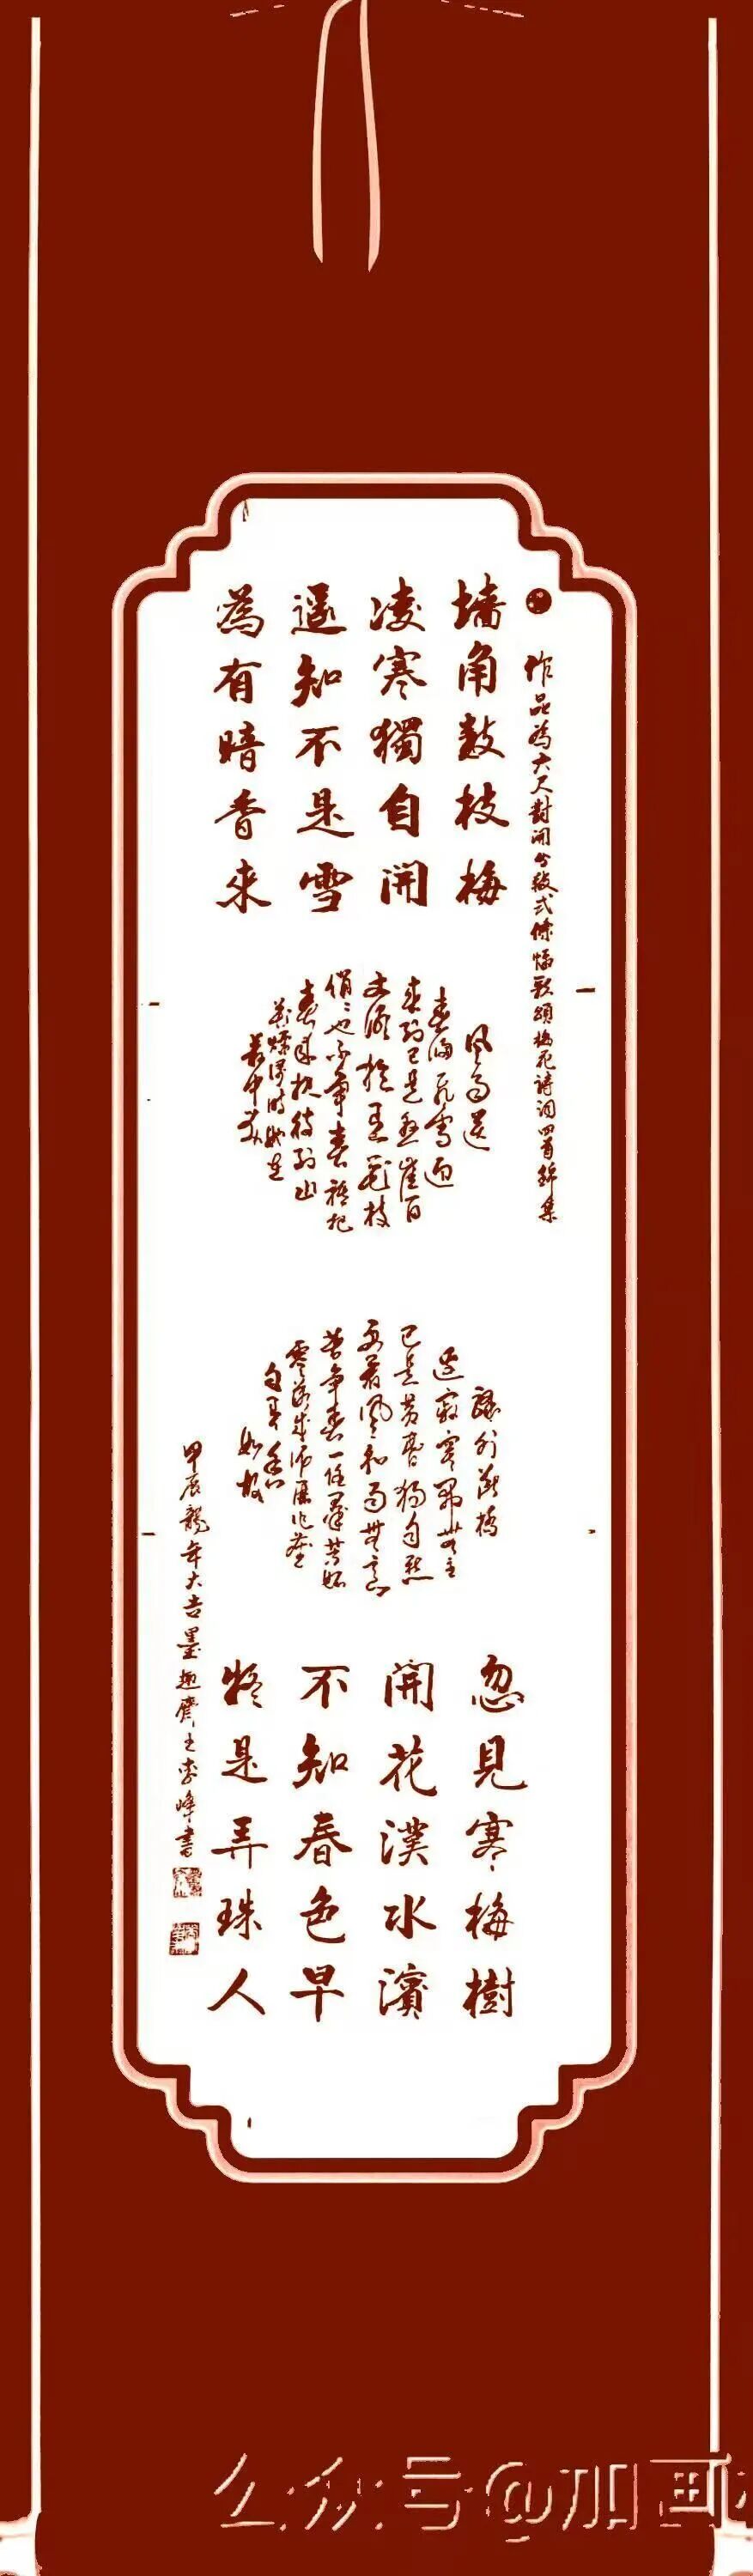 作品為六尺對開分段式條幅歌頌梅花詩詞四首錦集
墙角數枝梅
凌寒獨自開
遥知不是雪
為有暗香來
風雨送
春归飛雪迎
春到已是悬崖百
丈冰猶有花枝
俏俏也不争春祇把
春來报待到山
花爛漫時她在
叢中笑
驛外断橋
邊寂寞開無主
已是黄昏獨自愁
更著風和雨無意
苦争春一任羣芳妬
零落成泥碾作塵
只有香
如故
忽見寒梅樹
開花漢水濱
不知春色早
疑是弄珠人
甲辰龍年大吉墨趣齋主李峰書
公众号@加画